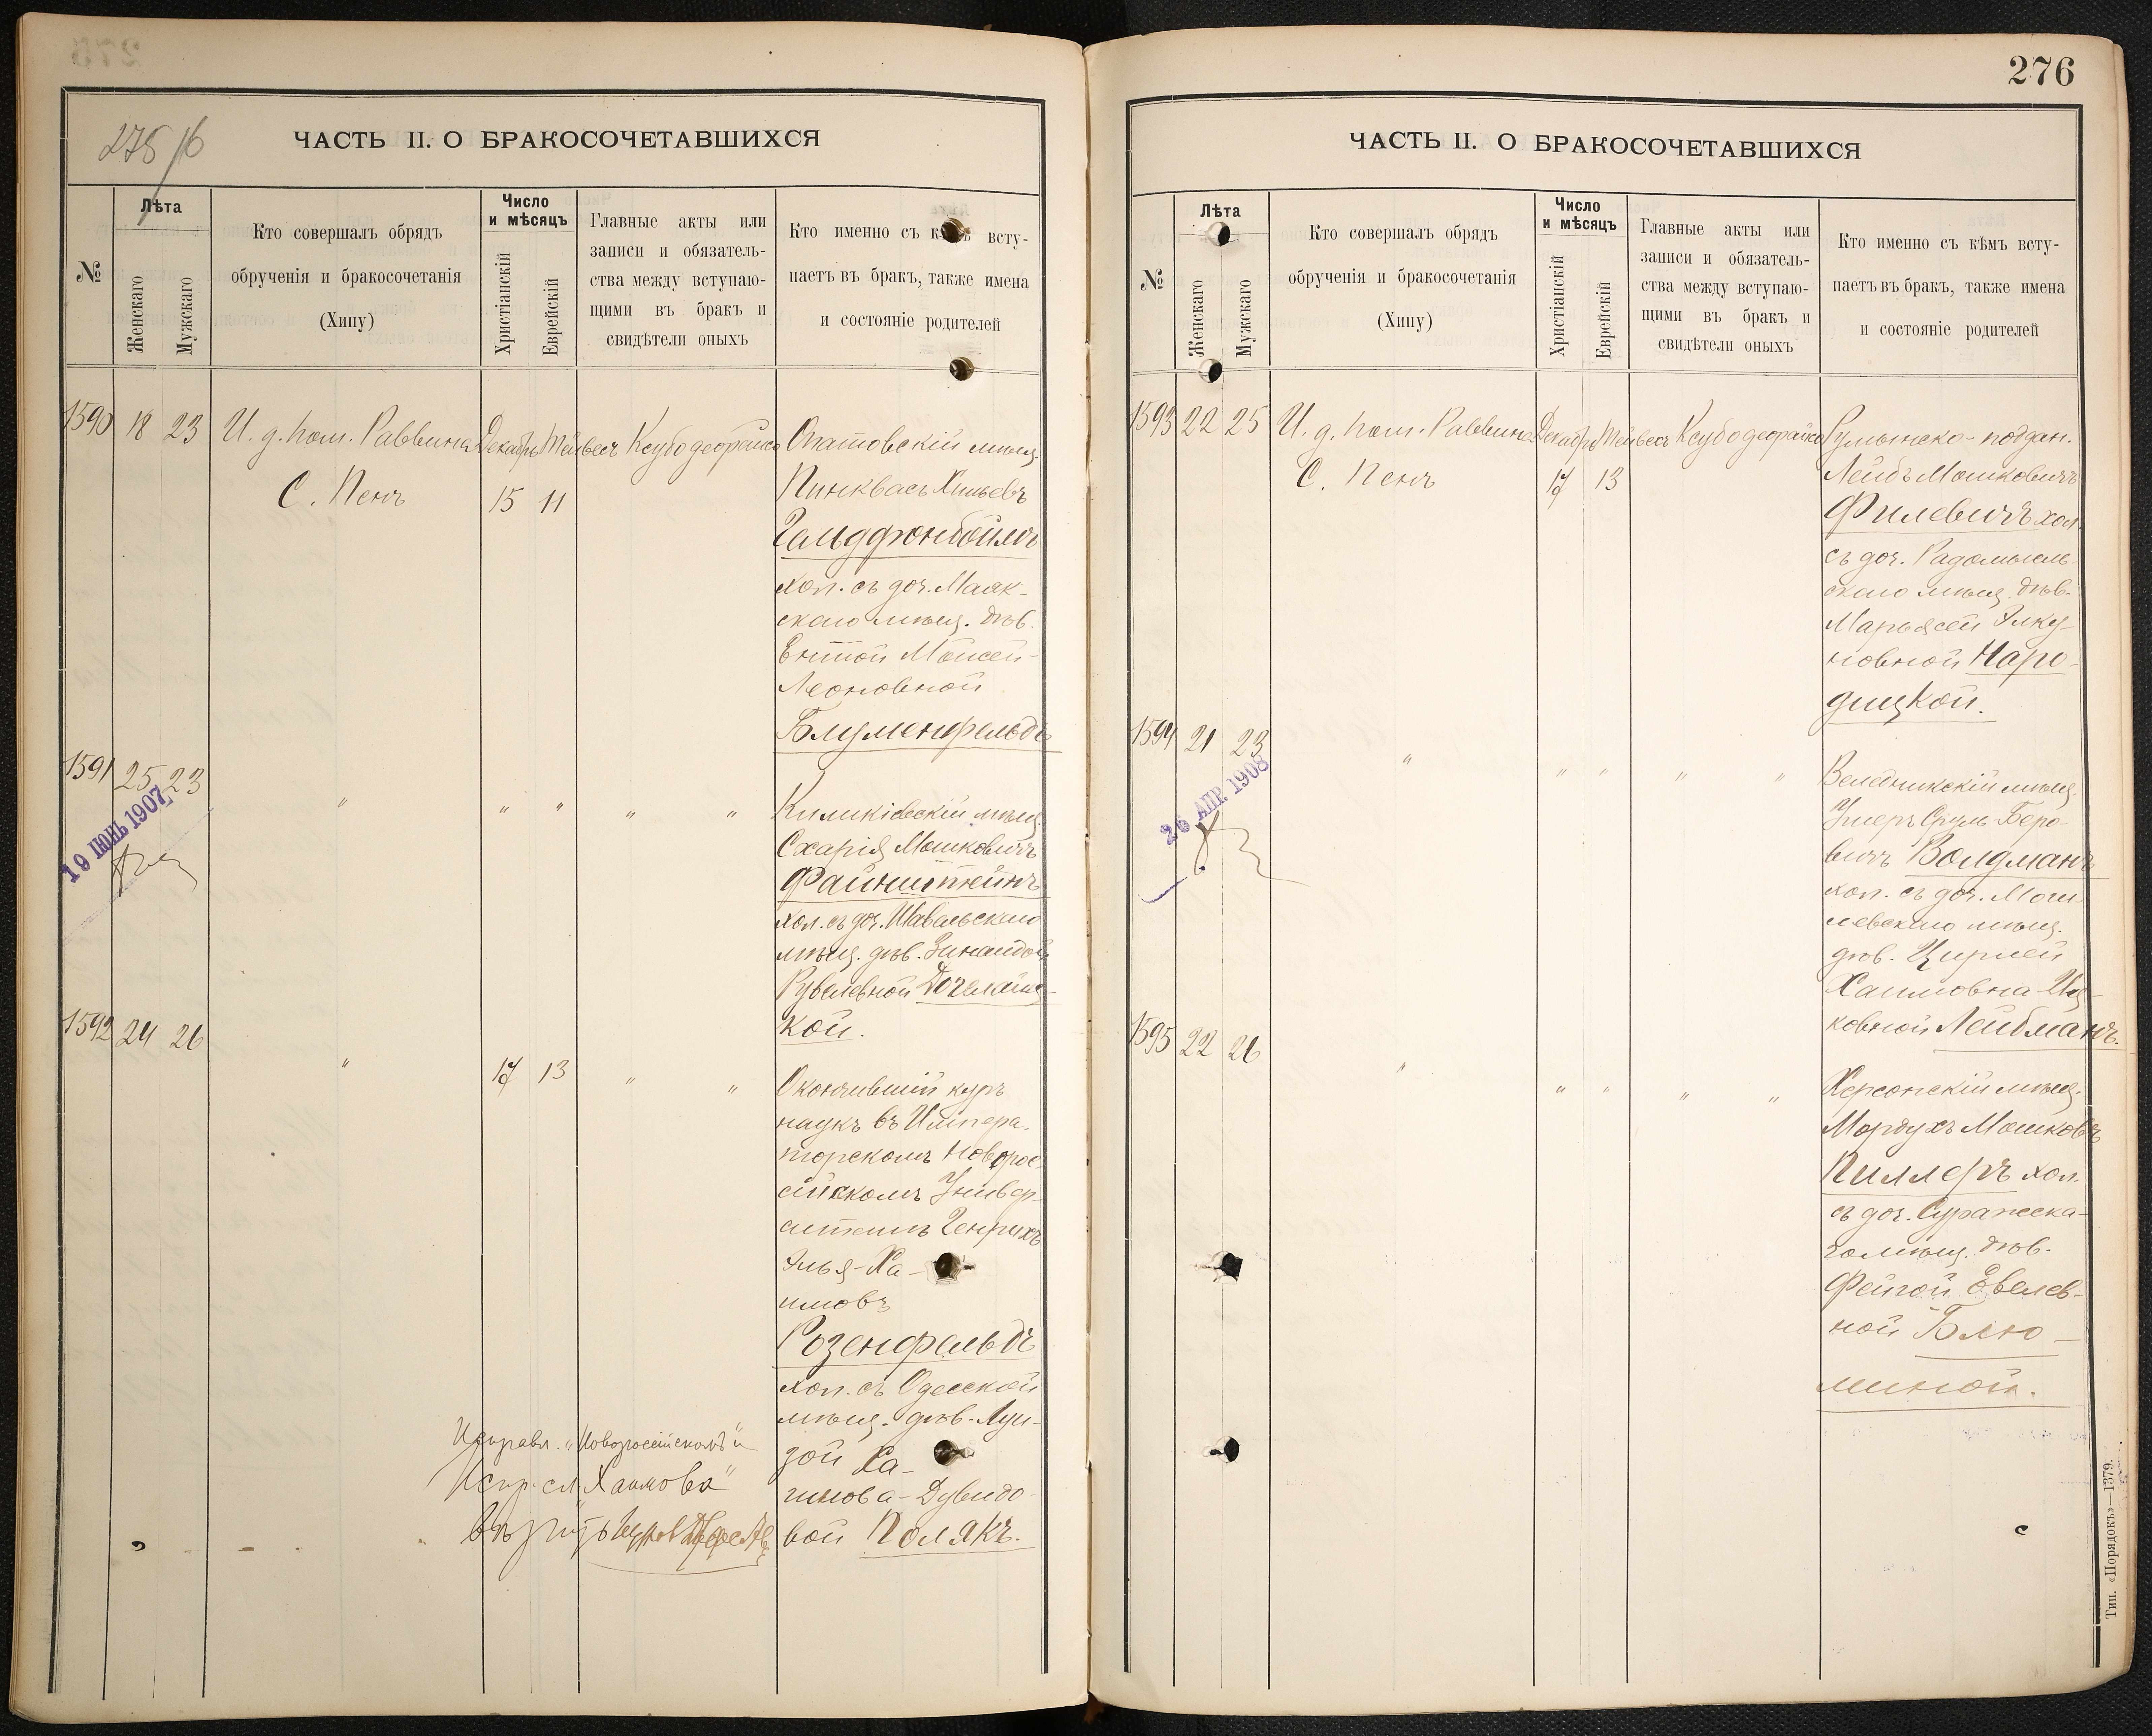 276
275/6
ЧАСТЬ II. О БРАКОСОЧЕТАВШИХСЯ
№
Лѣта
Женскаго
Мужскаго
Кто совершалъ обрядъ
обрученія и бракосочетанія
(Хипу)
Число
и мѣсяцъ
Христіанскій
Еврейскій
Главные акты или
записи и обязатель-
ства между вступаю-
щими въ бракъ и
свидѣтели оныхъ
Кто именно съ кѣмъ всту-
паетъ въ бракъ, также имена
и состояніе родителей
1590 18 23 И. д. пом. Раввина Декабрь Тейвесъ Ксубо деорайсо
С. Пенъ 15 11
Опатовскій мѣщ.
Пинквасъ Хильевъ
Гольдфонбоймъ
хол. съ доч. Маяк-
скаго мѣщ. дѣв.
Ентой Мойсей-
Леоновной
Блуменфельдъ
1591 25 23 " " " " "
19 ІЮНЬ 1907
Киликіевскій мѣщ.
Схарія Мошковичъ
Файнштейнъ
хол. съ доч. Шавельскаго
мѣщ. дѣв. Зинаидой
Рувелевной
кой.
1592 24 26 " 17 13 " "
Окончившій курсъ
наукъ въ Импера-
торскомъ Новорос-
сійскомъ Универ-
ситетѣ Генрихъ
Илья-Ха-
имовъ
Розенфельдъ
хол. съ Одесской
мѣщ. дѣв. Луи-
зой Ха-
имова-Дувидо-
вой Полякъ.
Исправл. "Новороссійскомъ" и
Испр. сл. "Хаимова"
ЧАСТЬ II. О БРАКОСОЧЕТАВШИХСЯ
№
Лѣта
Женскаго
Мужскаго
Кто совершалъ обрядъ
обрученія и бракосочетанія
(Хипу)
Число
и мѣсяцъ
Христіанскій
Еврейскій
Главные акты или
записи и обязатель-
ства между вступаю-
щими въ бракъ и
свидѣтели оныхъ
Кто именно съ кѣмъ всту-
паетъ въ бракъ, также имена
и состояніе родителей
1593 22 25 И. д. пом. Раввина Декабрь Тейвесъ Ксубо деорайсо
С. Пенъ 17 13
Румынско-поддан.
Лейбъ Мошковичъ
Филевичъ хол.
съ доч. Радомысль-
скаго мѣщ. дѣв.
Марьясей Элку-
новной Наро-
дицкой.
1594 21 23 " " " " "
26 АПР. 1908
Веледникскій мѣщ.
Ушеръ Сруль Беро-
вичъ Волдманъ
хол. съ доч. Моги-
левскаго мѣщ.
дѣв. Цирлей
Хаимовна-Иц-
ковной Лейбманъ.
1595 22 26 " " " " "
Херсонскій мѣщ.
Мордухъ Мошковъ
Пиллеръ хол.
съ доч. Суражска-
го мѣщ. дѣв.
Фейгой Евелев-
ной Блю-
миной.
Тип. «Порядокъ»—1379.